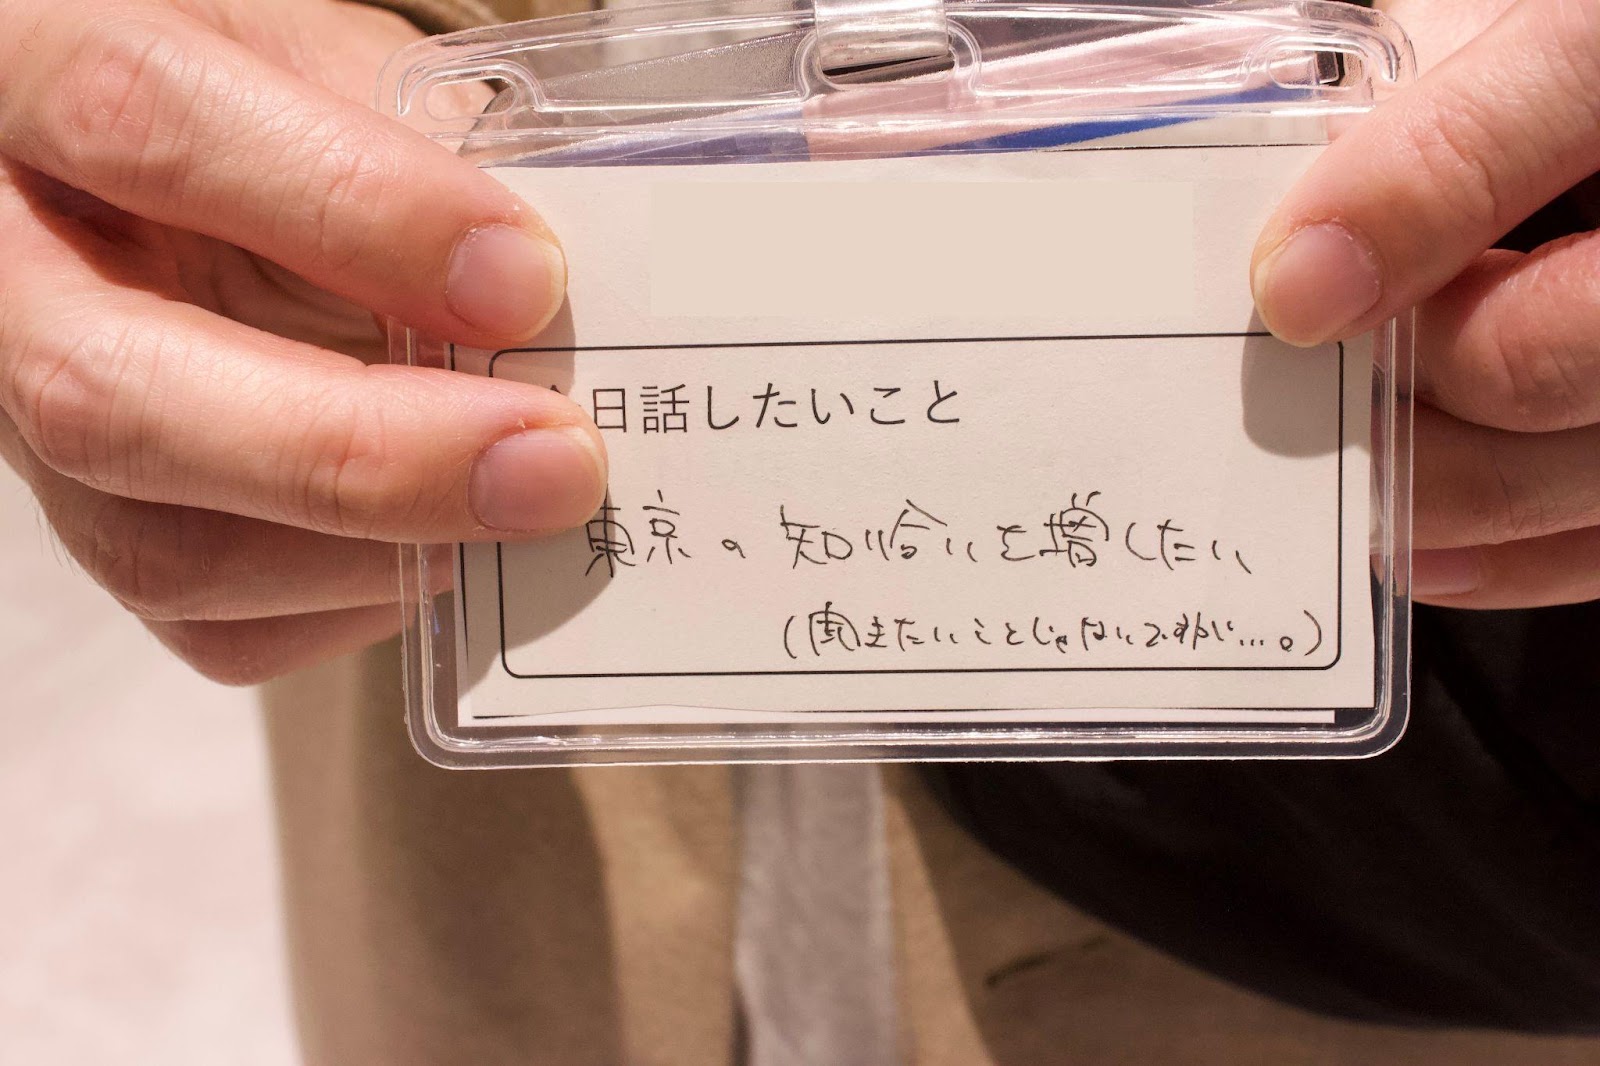 今日話したいこと
東京の知り合いを増したい
(聞きたいことじゃないですが…。)